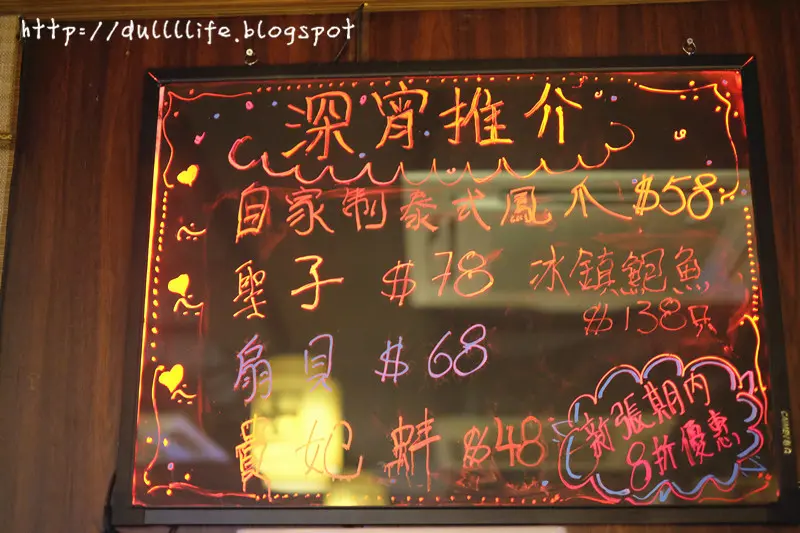 http://dullllife.blogspot
深宵推介
自家制泰式鳳爪 $58
聖子 $78
冰鎮鮑魚
$138只
扇貝 $68
貴妃蚌 $48
新張期内
8折優惠